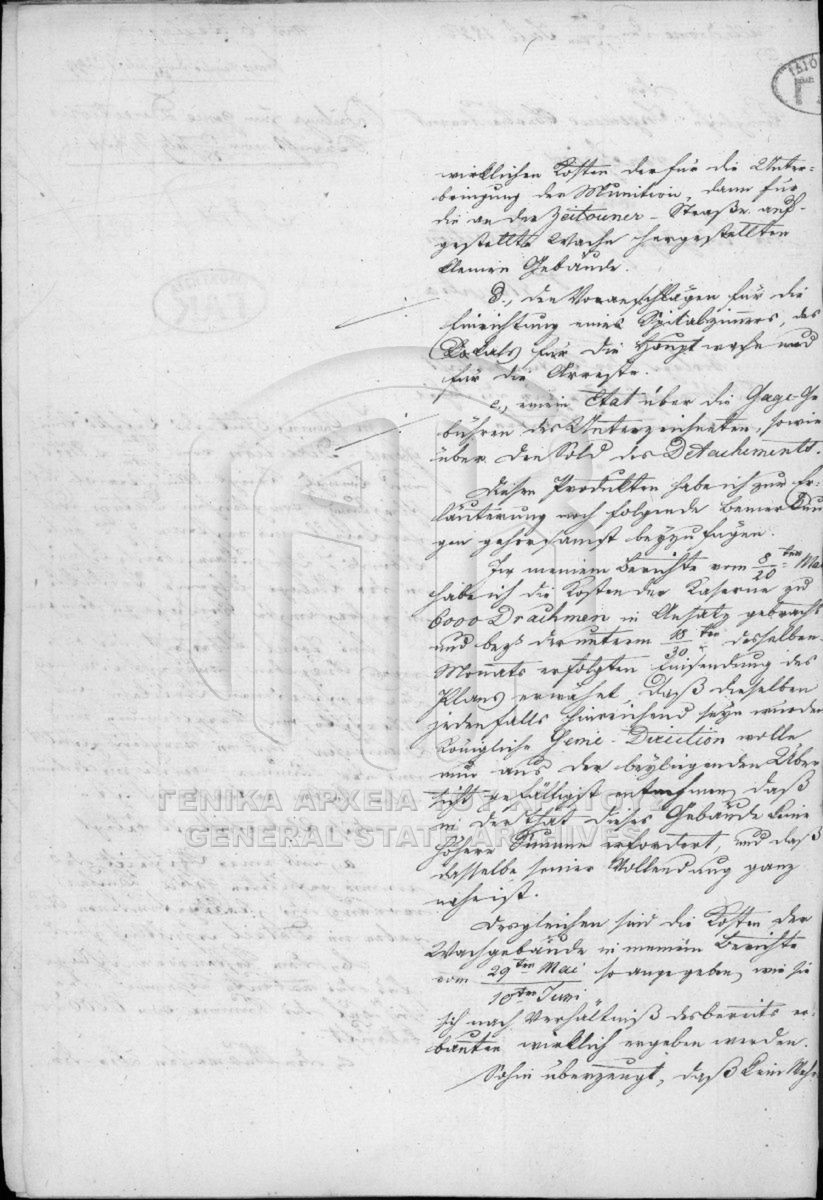 wirklichen Kosten der für die Unter=
bringung der Munition, dann für
die an der Zeitouner-Straße auf-
gestellte Wache hergestellten
kleinen Gebäude.
d., den Voranschlägen für die
Einrichtung eines Spitalzimmers, des
Lokals für die Hauptwache und
für die Arreste.
e., einen Etat über die Gage-Ge
bühren des Unterzeichneten, sowie
über den Sold des Detachements.
Diesen Produkten habe ich zur Er-
läuterung noch folgende Bemerkun
gen gehorsamst beyzufügen.
In meinem Berichte vom 8/20 ten Mai
habe ich die Kosten der Kaserne zu
6000 Drachmen in Ansatz gebracht
und bey der unterm 18/30 ten desselben
Monats erfolgten Einsendung des
Plans erwähnt, daß dieselben
jedenfalls hinreichend seyn würden
Königliche Genie-Direction wolle
nun aus der beyliegenden Über
sicht gefälligst entnehmen, daß
in der That dieses Gebäude keine
höhere Summe erfordert, und daß
dasselbe seiner Vollendung ganz
nahe ist.
Desgleichen sind die Kosten der
Wachgebäude in meinem Berichte
vom 29ten Mai / 10ten Juni so angegeben, wie sie
sich nach Verhältniß des bereits er-
bauten wirklich ergeben werden.
Sohin überzeugt, daß kein
ΓΕΝΙΚΑ ΑΡΧΕΙΑ ΤΟΥ ΚΡΑΤΟΥΣ
GENERAL STATE ARCHIVES